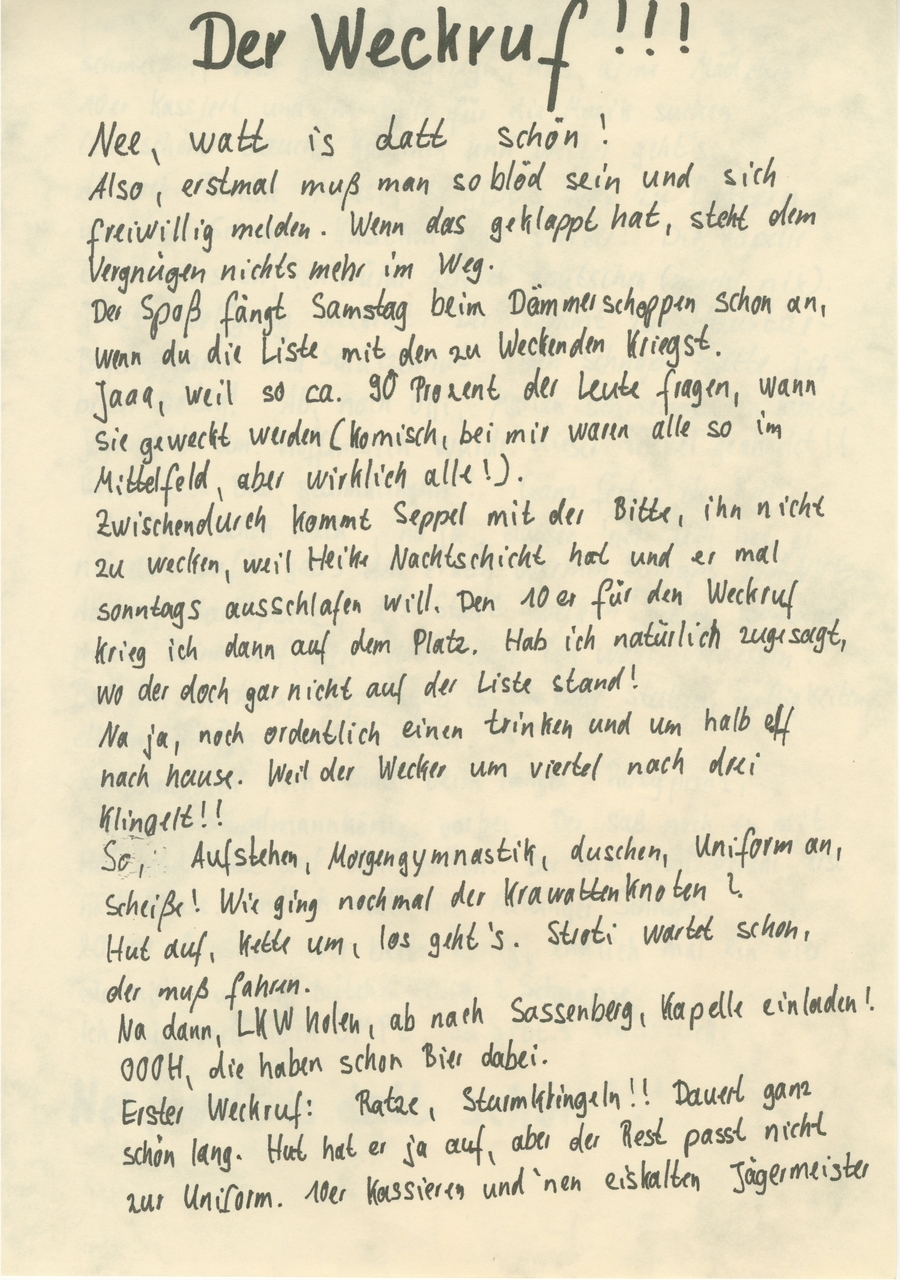 Der Weckruf!!!
Nee, watt is datt schön!
Also, erstmal muß man so blöd sein und sich
freiwillig melden. Wenn das geklappt hat, steht dem
Vergnügen nichts mehr im Weg.
Der Spaß fängt Samstag beim Dämmerschoppen schon an,
wenn du die Liste mit den zu Weckenden Kriegst.
Jaaa, weil so ca. 90 Prozent der Leute fragen, wann
sie geweckt werden (komisch, bei mir waren alle so im
Mittelfeld, aber wirklich alle!).
Zwischendurch kommt Seppel mit der Bitte, ihn nicht
zu wecken, weil Heike Nachtschicht hat und er mal
sonntags ausschlafen will. Den 10er für den Weckruf
krieg ich dann auf dem Platz. Hab ich natürlich zugesagt,
wo der doch gar nicht auf der Liste stand!
Na ja, noch ordentlich einen trinken und um halb elf
nach hause. Weil der Wecker um viertel nach drei
Klingelt!!
So, Aufstehen, Morgengymnastik, duschen, Uniform an,
Scheiße! Wie ging nochmal der Krawattenknoten?
Hut auf, Kette um, los geht's. Stroti wartet schon,
der muß fahren.
Na dann, LKW holen, ab nach Sassenberg, Kapelle einladen!
OOOH, die haben schon Bier dabei.
Erster Weckruf: Ratze, Sturmklingeln!! Dauert ganz
schön lang. Hut hat er ja auf, aber der Rest passt nicht
zur Uniform. 10er Kassieren und 'nen eiskalten Jägermeister